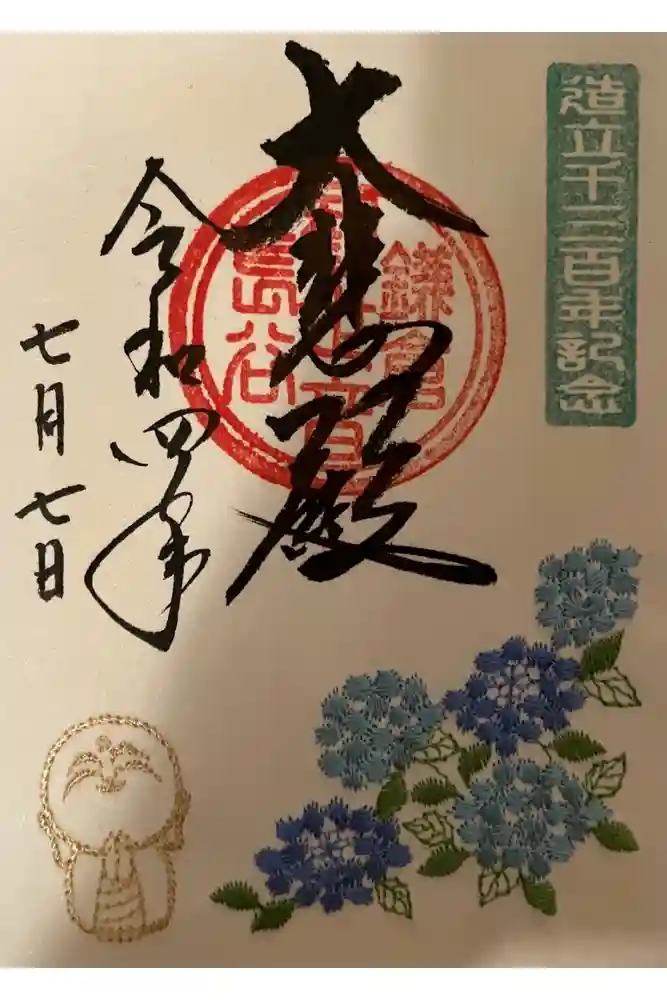 造立千三百年記念
大悲殿
鎌倉
長谷
令和四年
七月七日